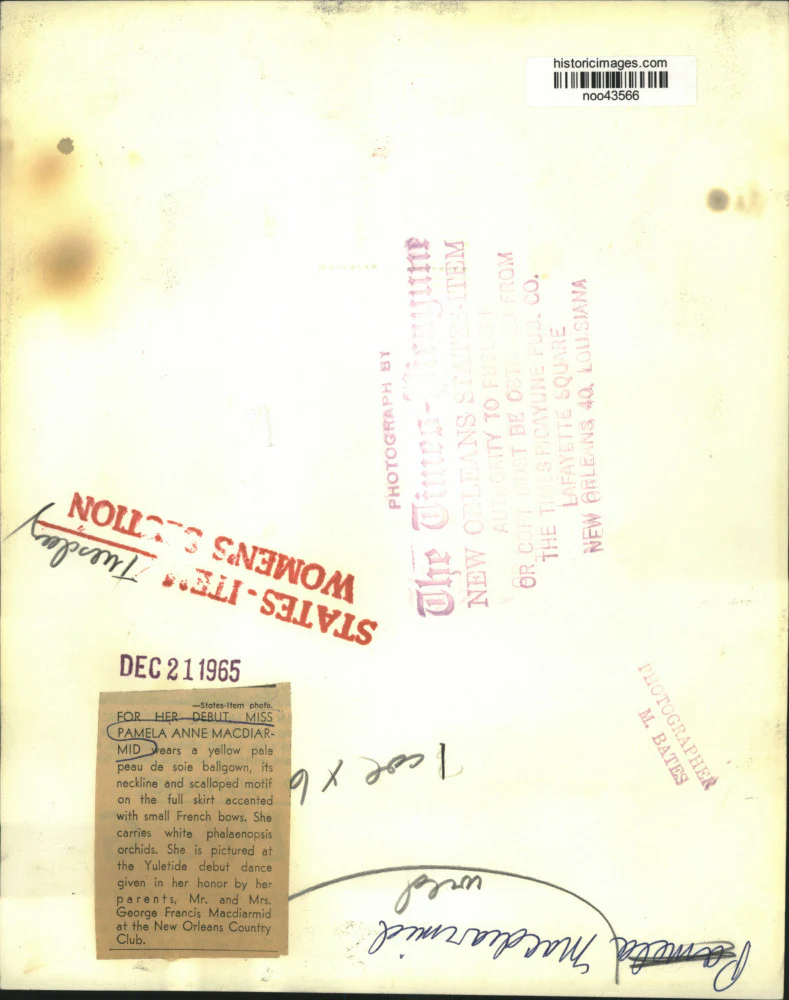 historicimages.com
noo43566
PHOTOGRAPH BY
The Times-Picayune
NEW ORLEANS STATES-ITEM
AUTHORITY TO PUBLISH
OR COPY MUST BE OBTAINED FROM
THE TIMES PICAYUNE PUB. CO.
LAFAYETTE SQUARE
NEW ORLEANS 40, LOUISIANA
STATES-ITEM Tuesday
WOMEN'S SECTION
DEC 21 1965
—States-Item photo.
FOR HER DEBUT, MISS
PAMELA ANNE MACDIAR-
MID wears a yellow pale
peau de soie ballgown, its
neckline and scalloped motif
on the full skirt accented
with small French bows. She
carries white phalaenopsis
orchids. She is pictured at
the Yuletide debut dance
given in her honor by her
parents, Mr. and Mrs.
George Francis Macdiarmid
at the New Orleans Country
Club.
PHOTOGRAPHER
M. BATES
1 col x 6
Pamela Macdiarmid